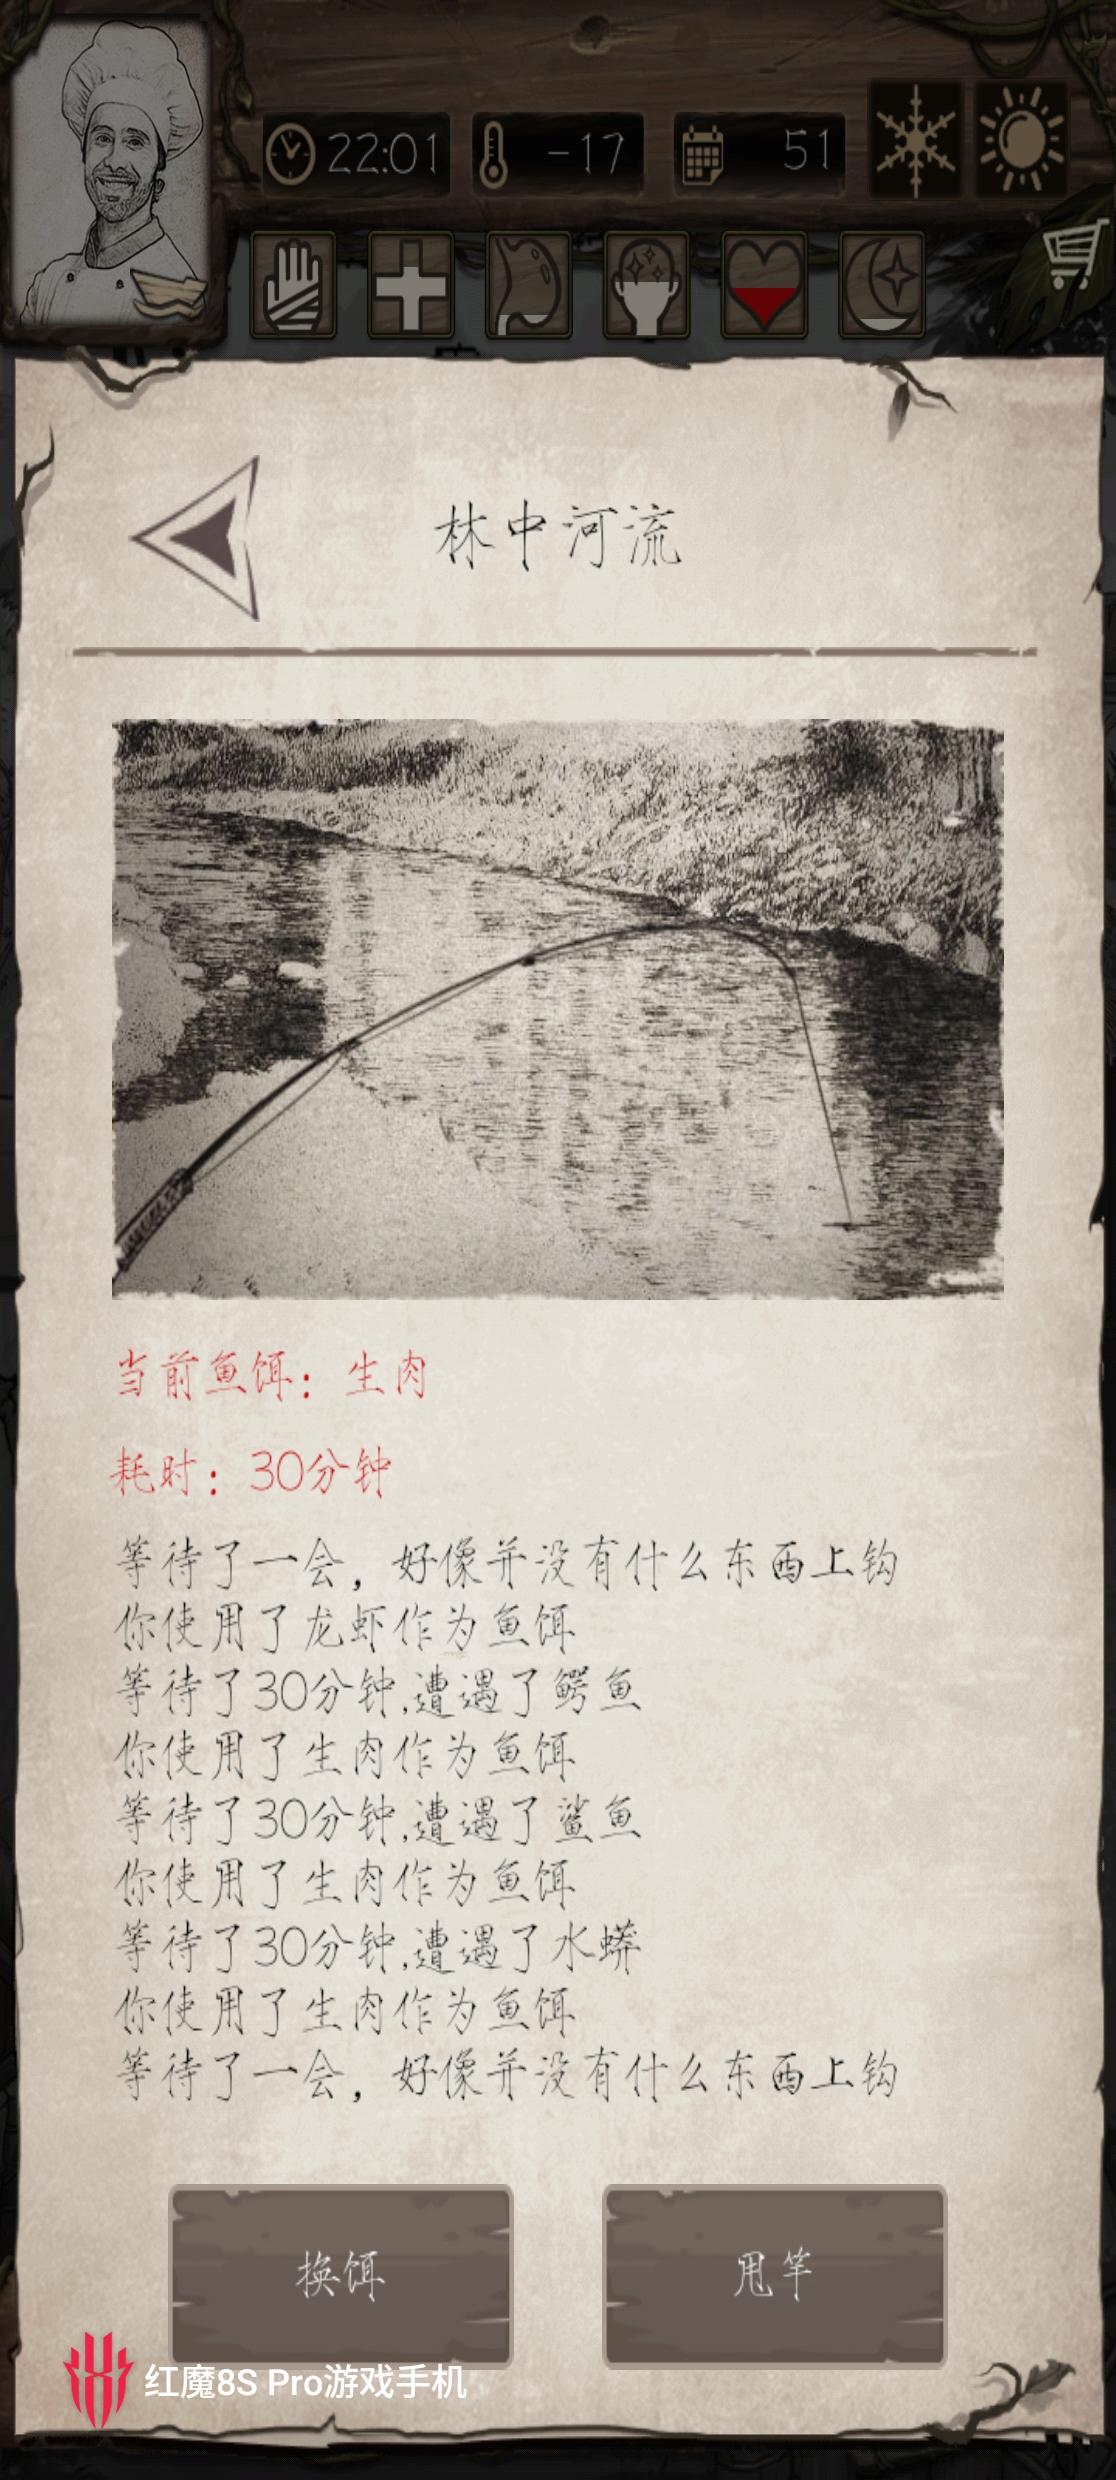 22:01
-17
51
林中河流
当前鱼饵：生肉
耗时：30分钟
等待了一会，好像并没有什么东西上钩
你使用了龙虾作为鱼饵
等待了30分钟,遭遇了鳄鱼
你使用了生肉作为鱼饵
等待了30分钟,遭遇了鲨鱼
你使用了生肉作为鱼饵
等待了30分钟,遭遇了水蟒
你使用了生肉作为鱼饵
等待了一会，好像并没有什么东西上钩
换饵
甩竿
红魔8S Pro游戏手机